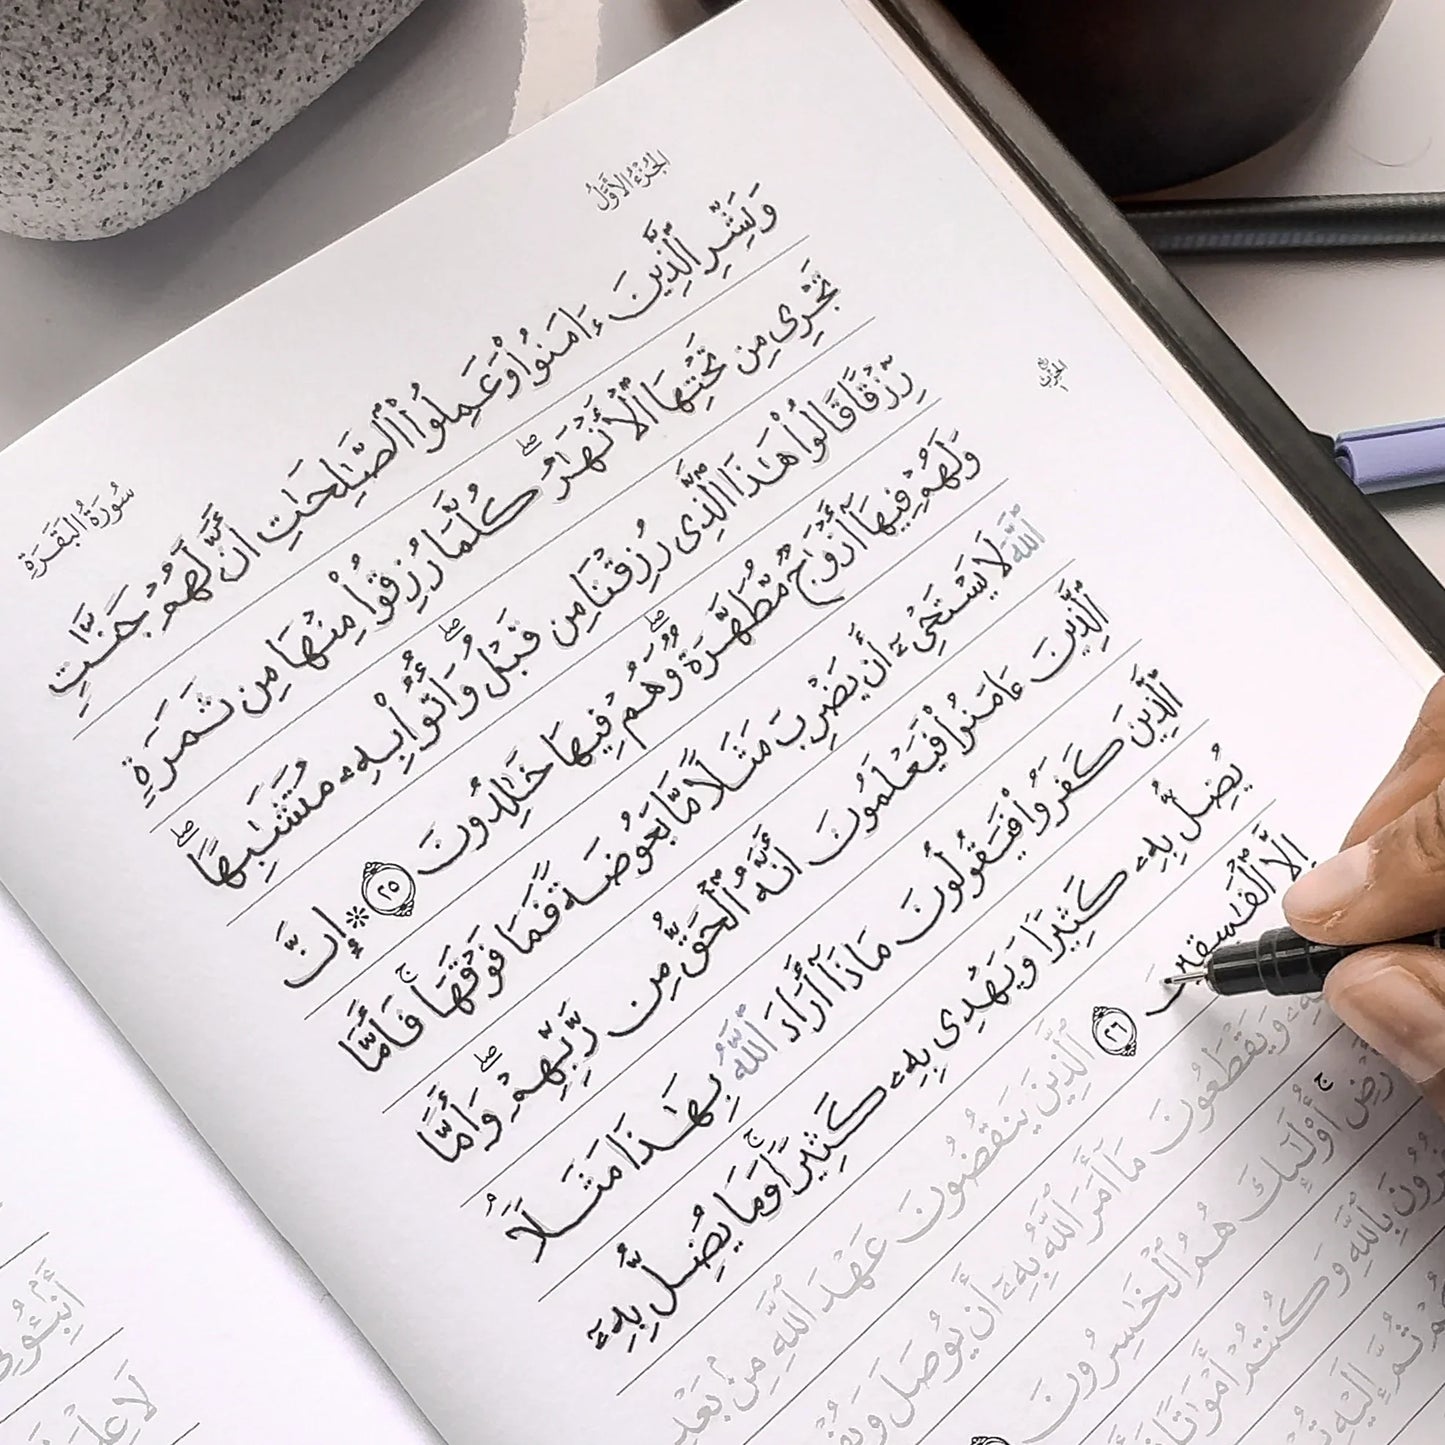 الجُزْءُ الأَوَّلُ
سُورَةُ البَقَرَةِ
وَبَشِّرِ ٱلَّذِينَ ءَامَنُوا۟ وَعَمِلُوا۟ ٱلصَّـٰلِحَـٰتِ أَنَّ لَهُمْ جَنَّـٰتٍ
تَجْرِى مِن تَحْتِهَا ٱلْأَنْهَـٰرُ ۖ كُلَّمَا رُزِقُوا۟ مِنْهَا مِن ثَمَرَةٍ
رِّزْقًا قَالُوا۟ هَـٰذَا ٱلَّذِى رُزِقْنَا مِن قَبْلُ ۖ وَأُتُوا۟ بِهِۦ مُتَشَـٰبِهًا ۖ
وَلَهُمْ فِيهَآ أَزْوَٰجٌ مُّطَهَّرَةٌ ۖ وَهُمْ فِيهَا خَـٰلِدُونَ ٢٥ ۞ إِنَّ
ٱللَّهَ لَا يَسْتَحْىِۦٓ أَن يَضْرِبَ مَثَلًا مَّا بَعُوضَةً فَمَا فَوْقَهَا ۚ فَأَمَّا
ٱلَّذِينَ ءَامَنُوا۟ فَيَعْلَمُونَ أَنَّهُ ٱلْحَقُّ مِن رَّبِّهِمْ ۖ وَأَمَّا
ٱلَّذِينَ كَفَرُوا۟ فَيَقُولُونَ مَاذَآ أَرَادَ ٱللَّهُ بِهَـٰذَا مَثَلًا ۘ
يُضِلُّ بِهِۦ كَثِيرًا وَيَهْدِى بِهِۦ كَثِيرًا ۚ وَمَا يُضِلُّ بِهِۦٓ
إِلَّا ٱلْفَـٰسِقِينَ ٢٦ ٱلَّذِينَ يَنقُضُونَ عَهْدَ ٱللَّهِ مِنۢ بَعْدِ
وَيَقْطَعُونَ مَآ أَمَرَ ٱللَّهُ بِهِۦٓ أَن يُوصَلَ
أُو۟لَـٰٓئِكَ هُمُ ٱلْخَـٰسِرُونَ
بِٱللَّهِ وَكُنتُمْ أَمْوَٰتًا
ثُمَّ إِلَيْهِ